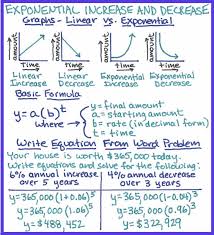 EXPONENTIAL INCREASE AND DECREASE
Graphs - Linear vs. Exponential
amount amount amount amount
time time time time
Linear Increase
Linear Decrease
Exponential Increase
Exponential Decrease
Basic Formula
y=a(b)^t
where →
y = final amount
a = starting amount
b = rate (in decimal form)
t = time
Write Equation From Word Problem
Your house is worth $365,000 today.
Write equations and solve for the following:
6% annual increase over 5 years
y=365,000(1+0.06)^5
y=365,000(1.06)^5
y=$488,452
4% annual decrease over 3 years
y=365,000(1-0.04)^3
y=365,000(0.96)^3
y=$322,929